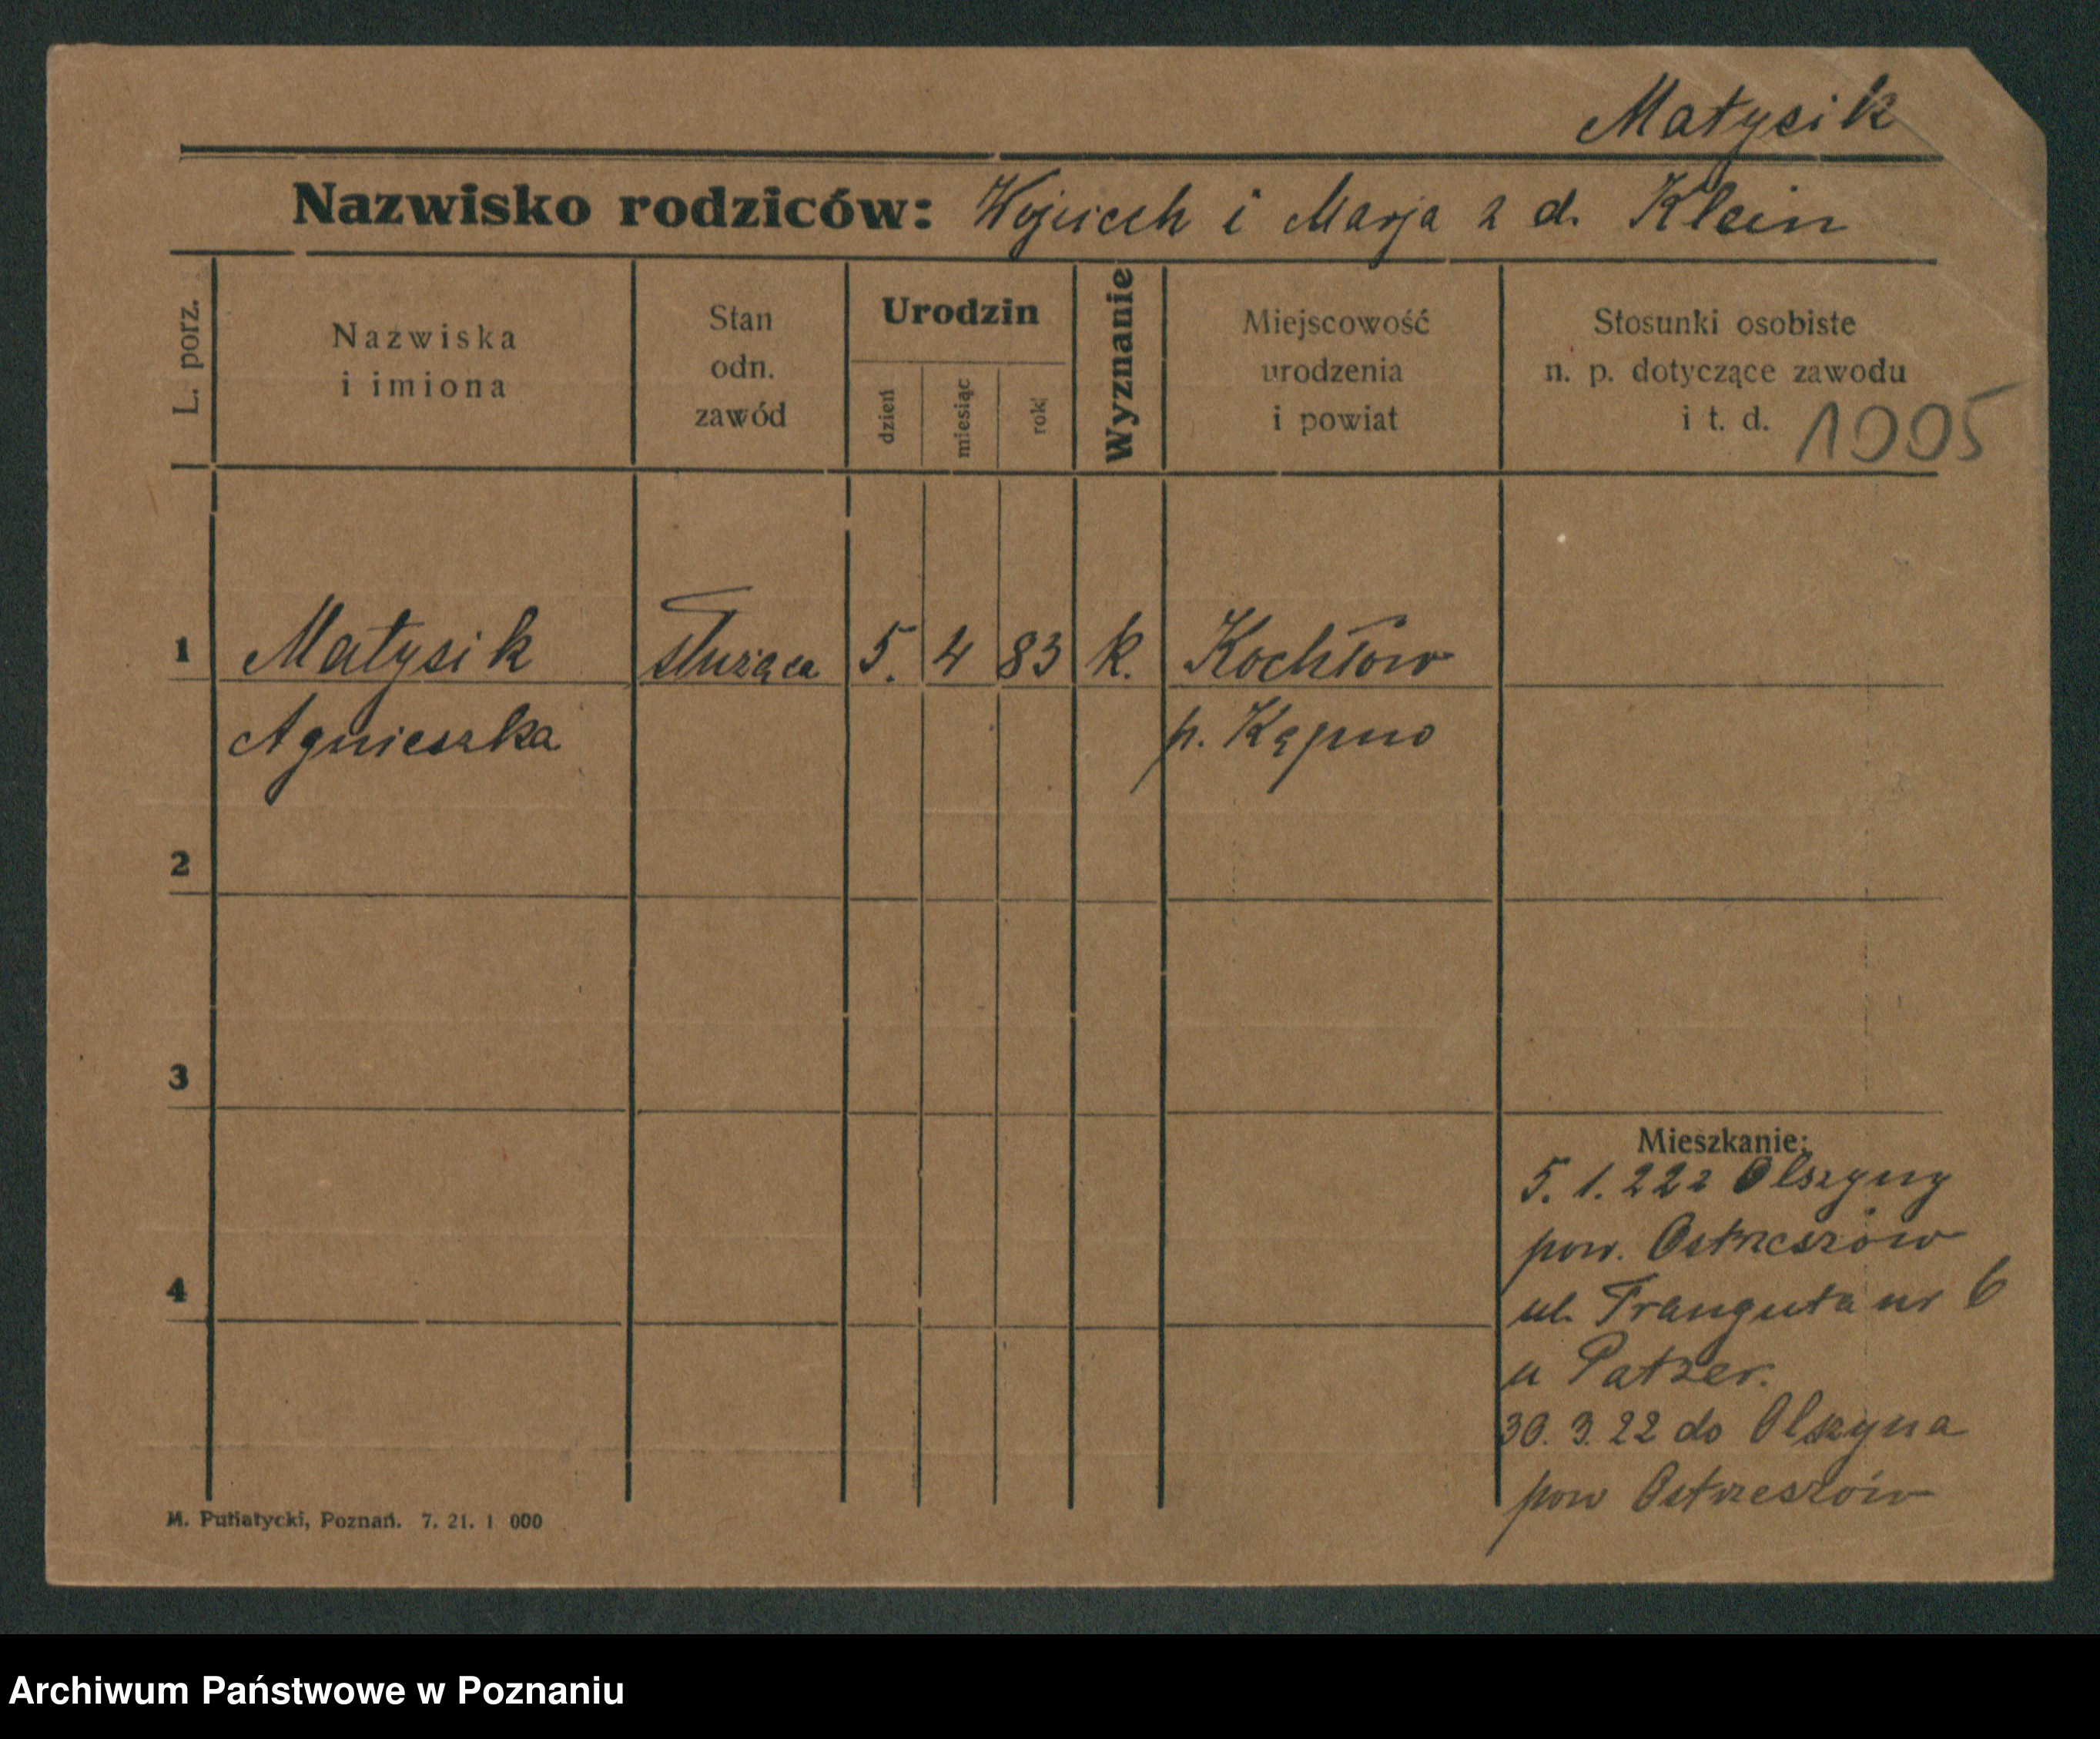 Matysik
Nazwisko rodziców: Wojciech i Marja z d. Klein
L. porz.
Nazwiska
i imiona
Stan
odn.
zawód
Urodzin
dzień
miesiąc
rok
Wyznanie
Miejscowość
urodzenia
i powiat
Stosunki osobiste
n. p. dotyczące zawodu
i t. d.
1005
1 Matysik służąca 5. 4 83 k. Kochłów
Agnieszka p. Kępno
2
3
4
Mieszkanie:
5. 1. 22 z Olszyny
pow. Ostrzeszów
ul. Trauguta nr 6
u Patzer.
30. 3. 22 do Olszyna
pow Ostrzeszów
M. Putiatycki, Poznań. 7. 21. 1 000
Archiwum Państwowe w Poznaniu